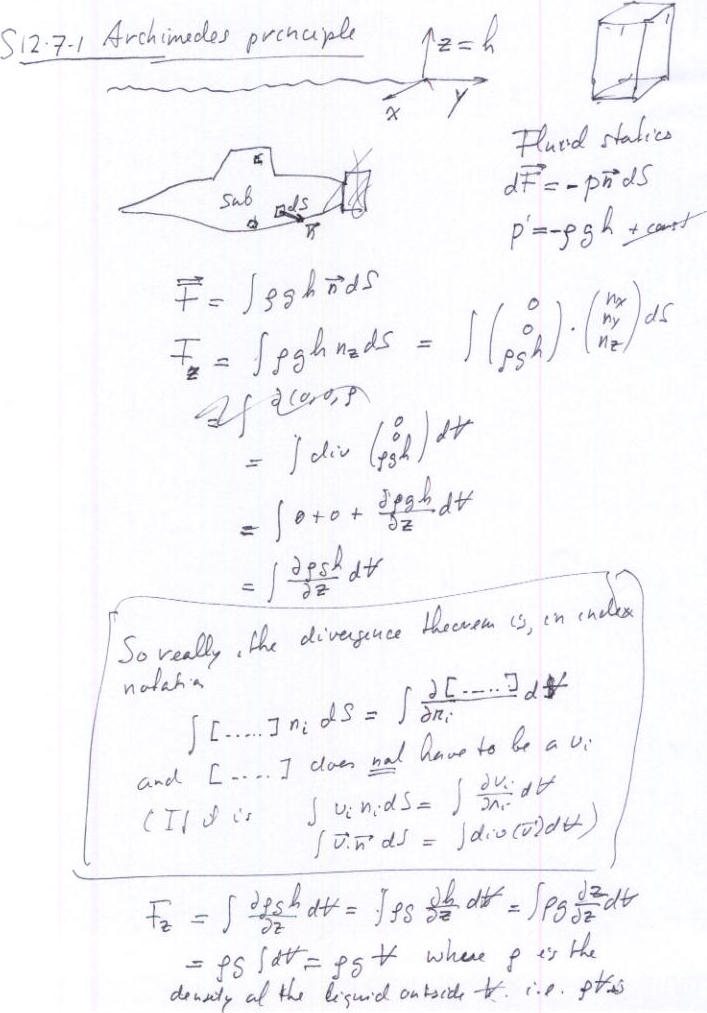 S12.7.1 Archimedes principle
z = h
x y
Fluid statics
dF⃗ = -p n⃗ dS
p = -ρgh + const
Sub
dS
n⃗
F⃗ = ∫ρgh n⃗ dS
F_z = ∫ρgh n_z dS = ∫(0 0 ρgh) · (n_x n_y n_z) dS
= ∫ div (0 0 ρgh) dV
= ∫ 0 + 0 + ∂ρgh/∂z dV
= ∫ ∂ρgh/∂z dV
So really, the divergence theorem is, in index
notation
∫[.....] n_i dS = ∫ ∂[.....]/∂x_i dV
and [....] does not have to be a v_i
(If it is ∫ v_i n_i dS = ∫ ∂v_i/∂x_i dV
∫ v⃗.n⃗ dS = ∫div(v⃗)dV)
F_z = ∫ ∂ρgh/∂z dV = ∫ρg ∂h/∂z dV = ∫ρg ∂z/∂z dV
= ρg ∫dV = ρg V where ρ is the
density of the liquid outside V. i.e. ρV is